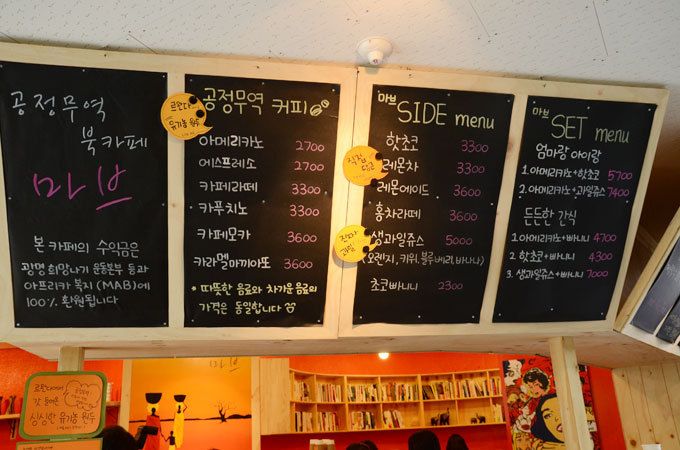 공정무역
북카페
마브
본 카페의 수익금은
광명 희망나기 운동본부 등과
아프리카 복지 (MAB)에
100% 환원됩니다
르완다
유기농 원두
공정무역 커피
아메리카노 2700
에스프레소 2700
카페라떼 3300
카푸치노 3300
카페모카 3600
카라멜마끼아또 3600
* 따뜻한 음료와 차가운 음료의
가격은 동일합니다
마브 SIDE menu
핫초코 3300
직접담근
레몬차 3300
레몬에이드 3600
홍차라떼 3600
생과일쥬스 5000
(오렌지, 키위, 블루베리, 바나나)
초코빠니니 2300
마브 SET menu
엄마랑 아이랑
1. 아메리카노+핫초코 5700
2. 아메리카노+과일쥬스 7400
든든한 간식
1. 아메리카노+빠니니 4700
2. 핫초코+빠니니 4300
3. 생과일쥬스+빠니니 7000
마브
르완다에서
갓 들여온
싱싱한 유기농 원두